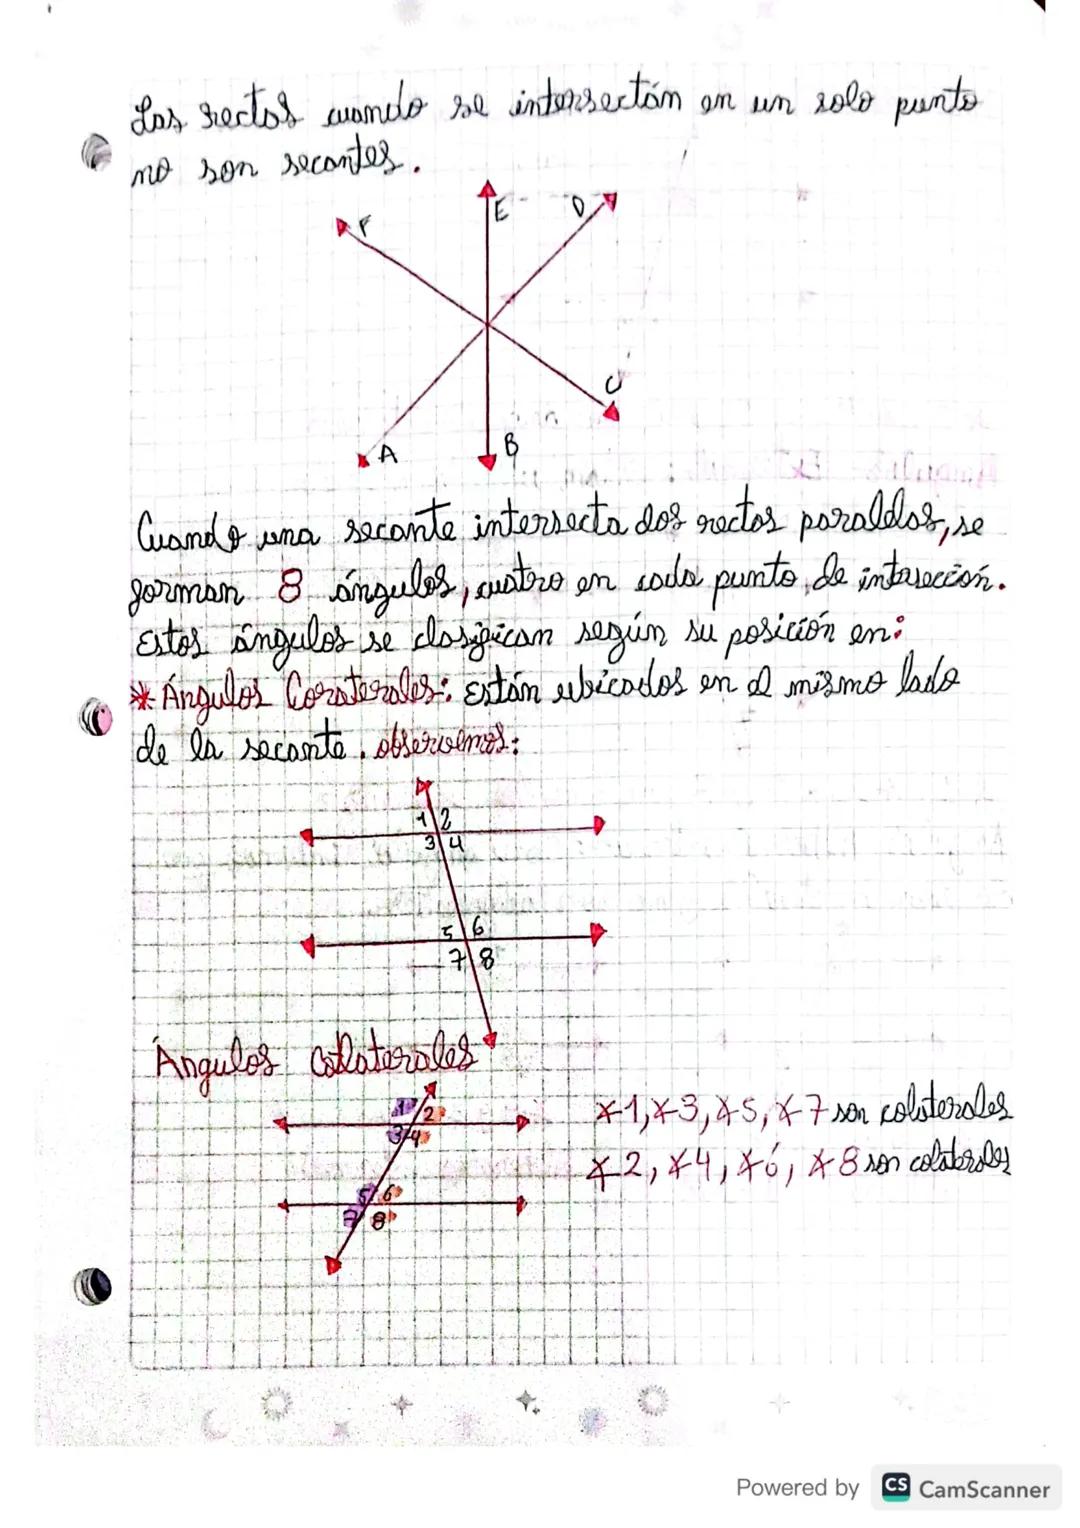 Las rectas cuando se intersectán en un solo punto
no son secantes.
F E D
C
A B
Cuando una secante intersecta dos rectas paralelas, se
forman 8 ángulos, cuatro en cada punto de intersección.
Estos ángulos se clasifican según su posición en:
* Ángulos Coraterales: Están ubicados en el mismo lado
de la secante. observemos:
1 2
3 4
5 6
7 8
Ángulos Collaterales
1 2
3 4
5 6
7 8
∡1, ∡3, ∡5, ∡7 son colaterales
∡2, ∡4, ∡6, ∡8 son colaterales
Powered by CS CamScanner